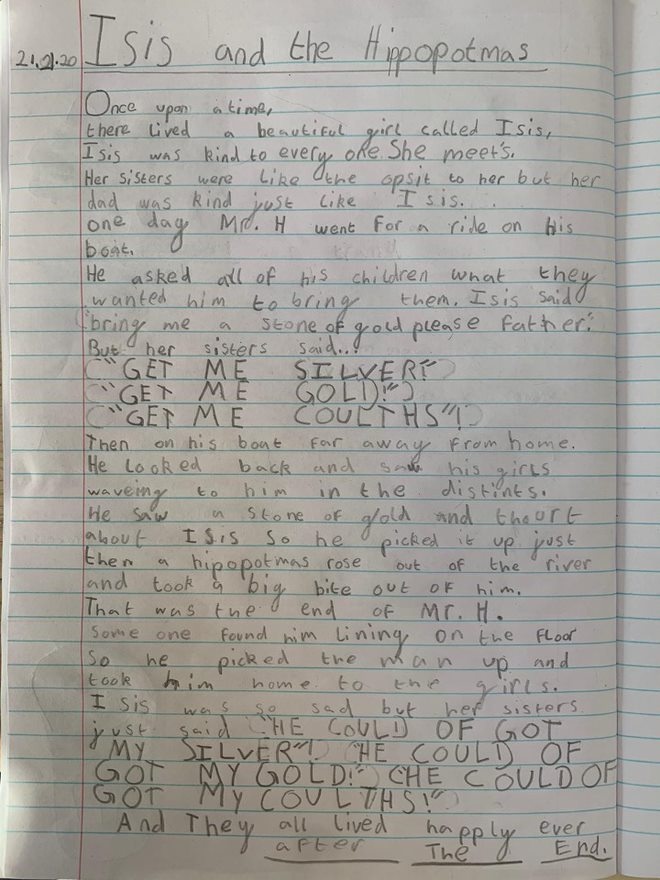 21.21.20 Isis and the Hippopotmas
Once upon a time,
there lived a beautiful girl called Isis,
Isis was kind to every one She meet's.
Her sisters were like the opsit to her but her
dad was kind just like Isis.
one day Mr. H went for a ride on his
boat.
He asked all of his children what they
wanted him to bring them. Isis said
"bring me a stone of gold please father."
But her sisters said...
"GET ME SILVER!"
"GET ME GOLD!"
"GET ME COULTHS"!
Then on his boat far away from home.
He looked back and saw his girls
waveing to him in the distints.
He saw a stone of gold and thourt
about ISis so he picked it up just
then a hipopotmas rose out of the river
and took a big bite out of him.
That was the end of Mr. H.
Some one found him lining on the floor
So he picked the man up and
took him home to the girls.
Isis was so sad but her sisters
just said "HE COULD OF GOT
MY SILVER"! "HE COULD OF
GOT MY GOLD!" "HE COULD OF
GOT MY COULTHS!"
And They all lived happly ever
after The End.